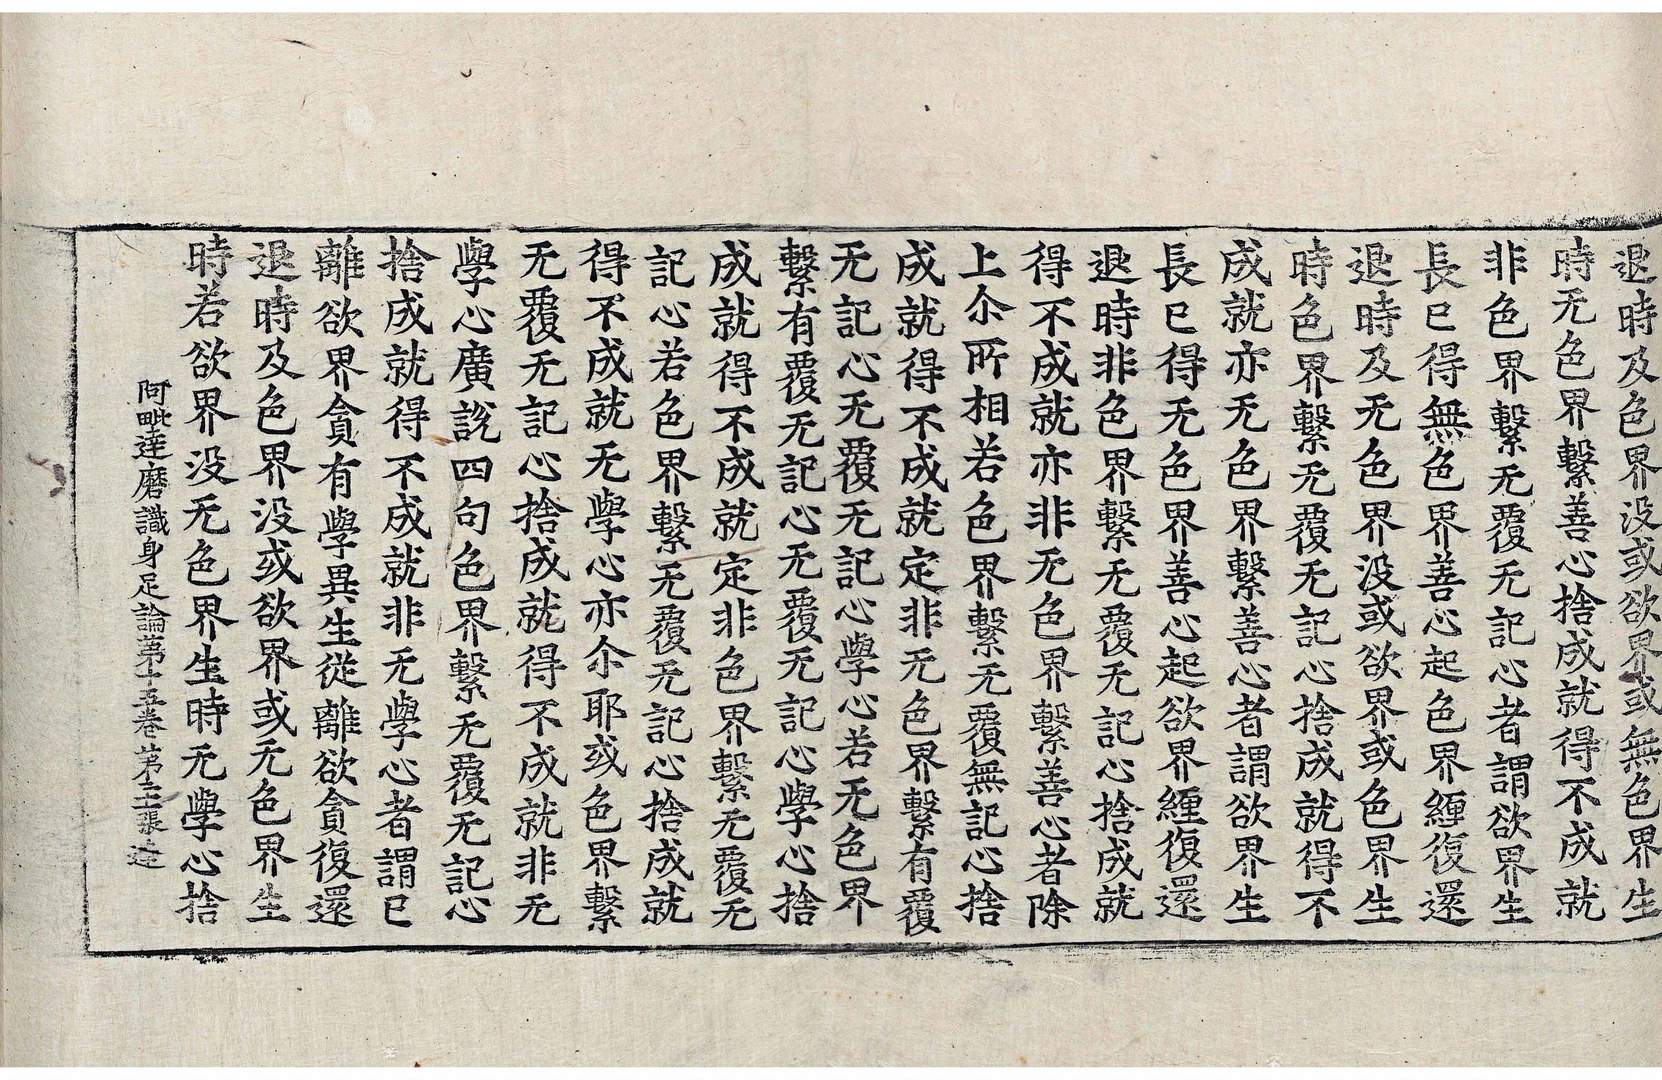 退時及色界没或欲界或無色界生
時无色界繫善心捨成就得不成就
非色界繫无覆无記心者謂欲界生
長已得無色界善心起色界纏復還
退時及无色界没或欲界或色界生
時色界繫无覆无記心捨成就得不
成就亦无色界繫善心者謂欲界生
長已得无色界善心起欲界纏復還
退時非色界繫无覆无記心捨成就
得不成就亦非无色界繫善心者除
上尒所相若色界繫无覆無記心捨
成就得不成就定非无色界繫有覆
无記心无覆无記心學心若无色界
繫有覆无記心无覆无記心學心捨
成就得不成就定非色界繫无覆无
記心若色界繫无覆无記心捨成就
得不成就无學心亦尒耶或色界繫
无覆无記心捨成就得不成就非无
學心廣說四句色界繫无覆无記心
捨成就得不成就非无學心者謂已
離欲界貪有學異生從離欲貪復還
退時及色界没或欲界或无色界生
時若欲界没无色界生時无學心捨
阿毗達磨識身足論苐十五卷苐三張 逵